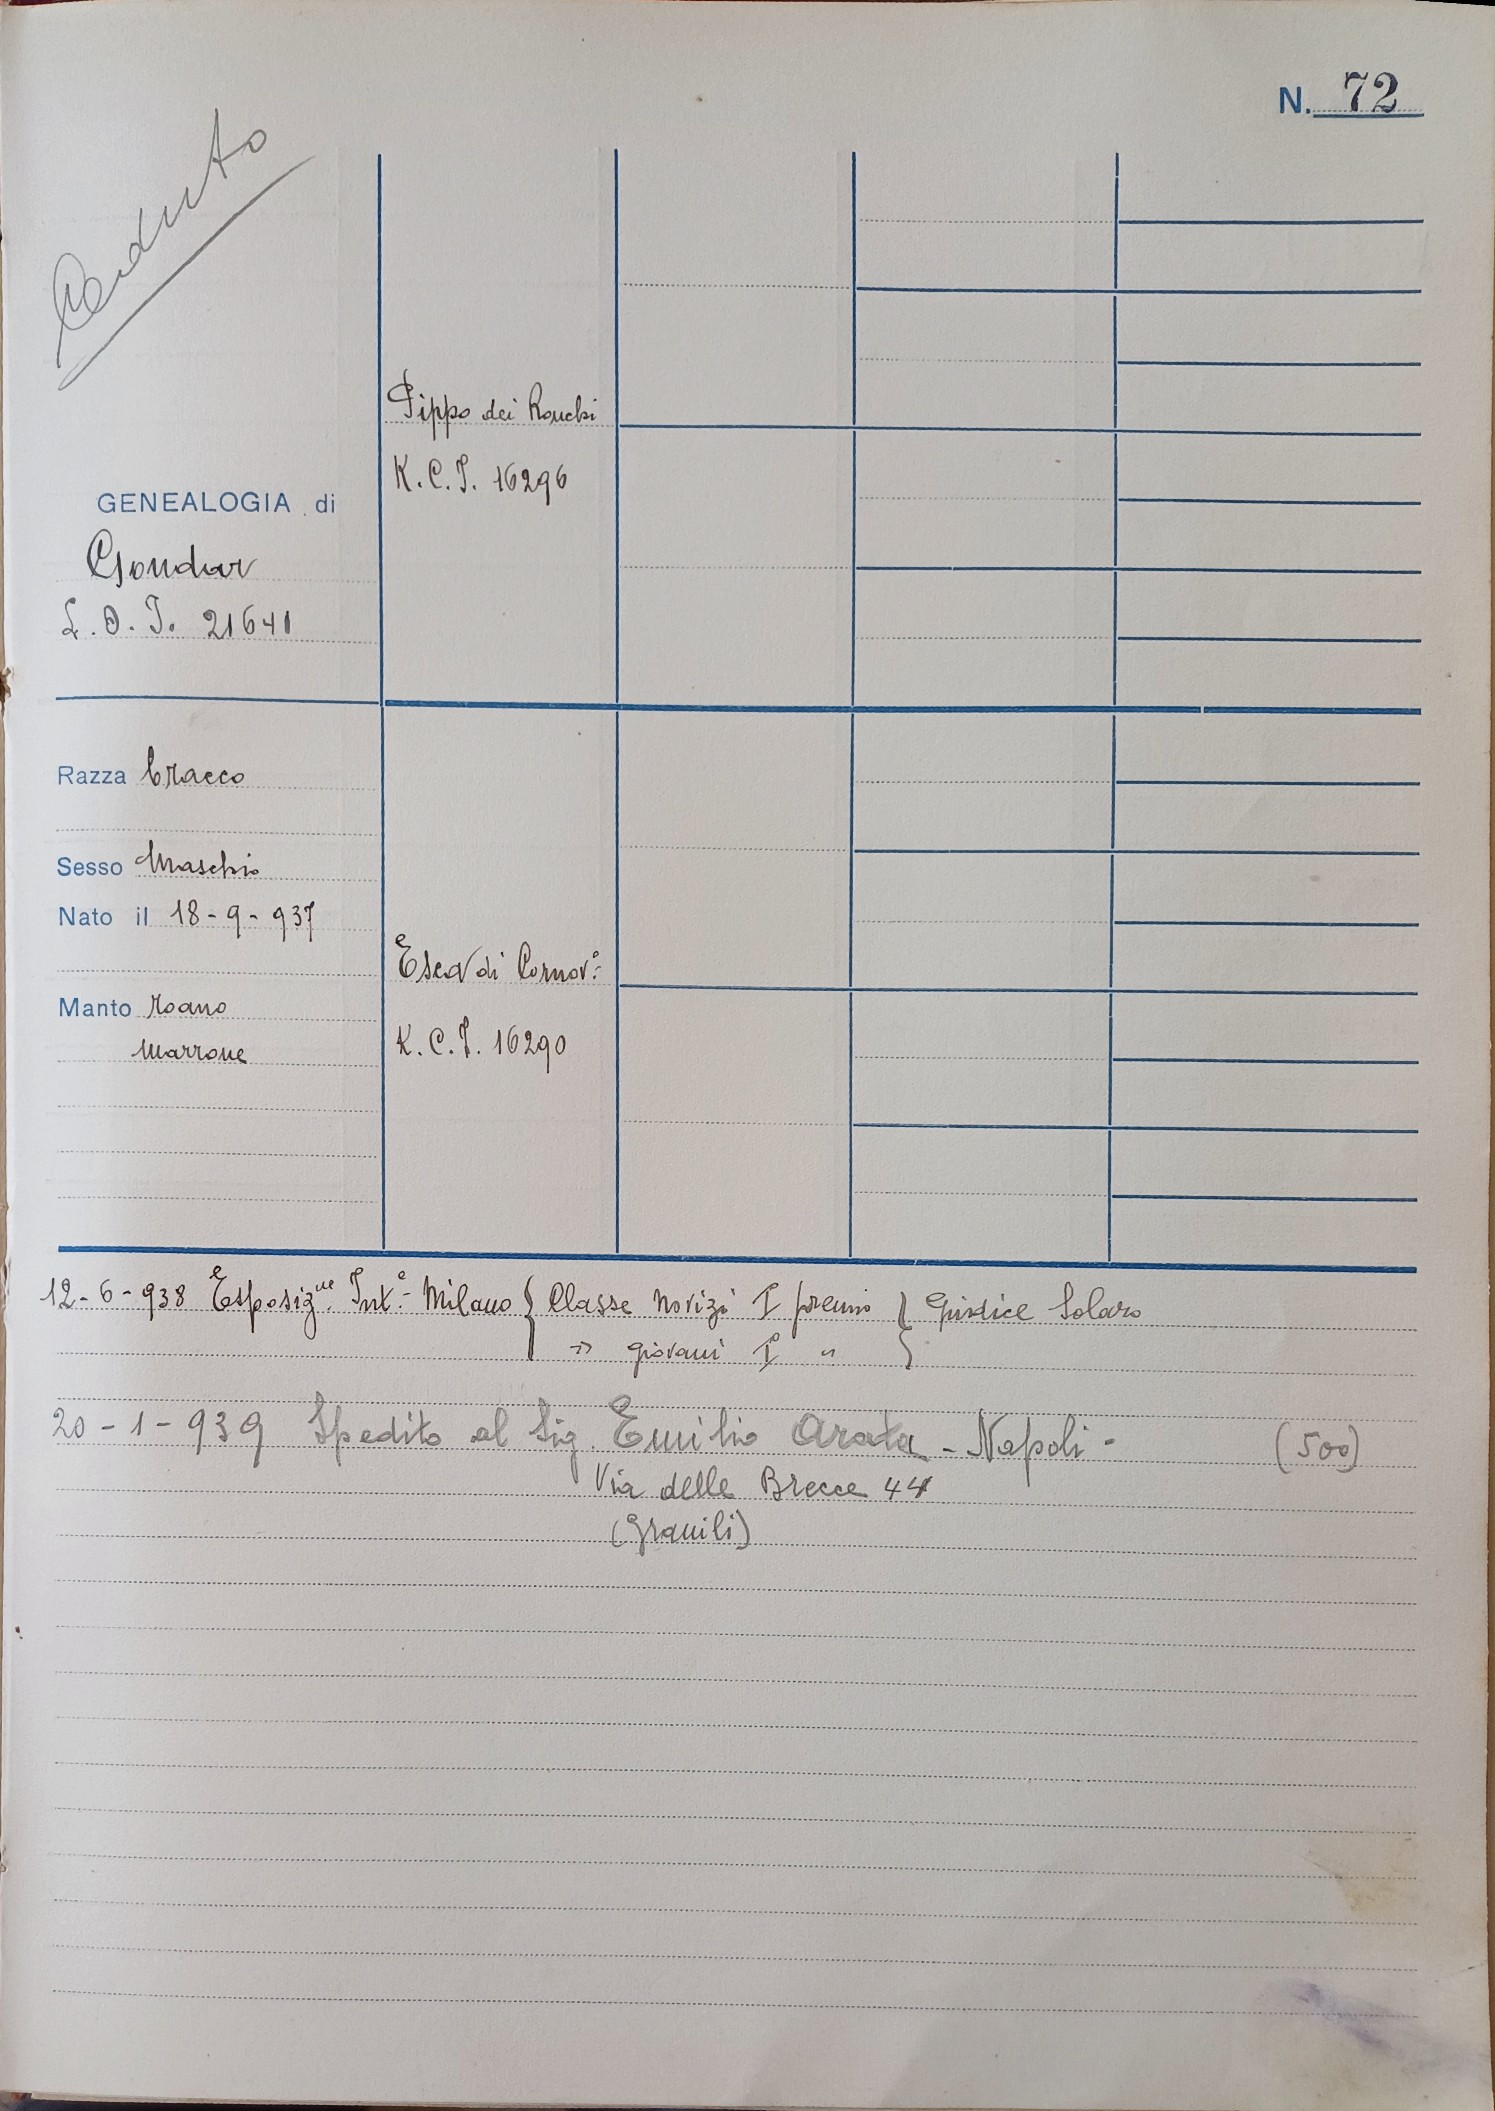 N. 72
Ceduto
Pippo dei Ronchi
K.C.I. 16296
GENEALOGIA di
Gondar
L.O.I. 21641
Razza bracco
Sesso Maschio
Nato il 18-9-937
Esca di Cornov.º
Manto roano
K.C.I. 16290
marrone
12-6-938 Esposiz.ne Int.e Milano { Classe Novizi I premio } Giudice Solaro
" giovani I "
20-1-939 Spedito al Sig. Emilio Arata - Napoli - (500)
Via delle Brecce 44
(Granili)